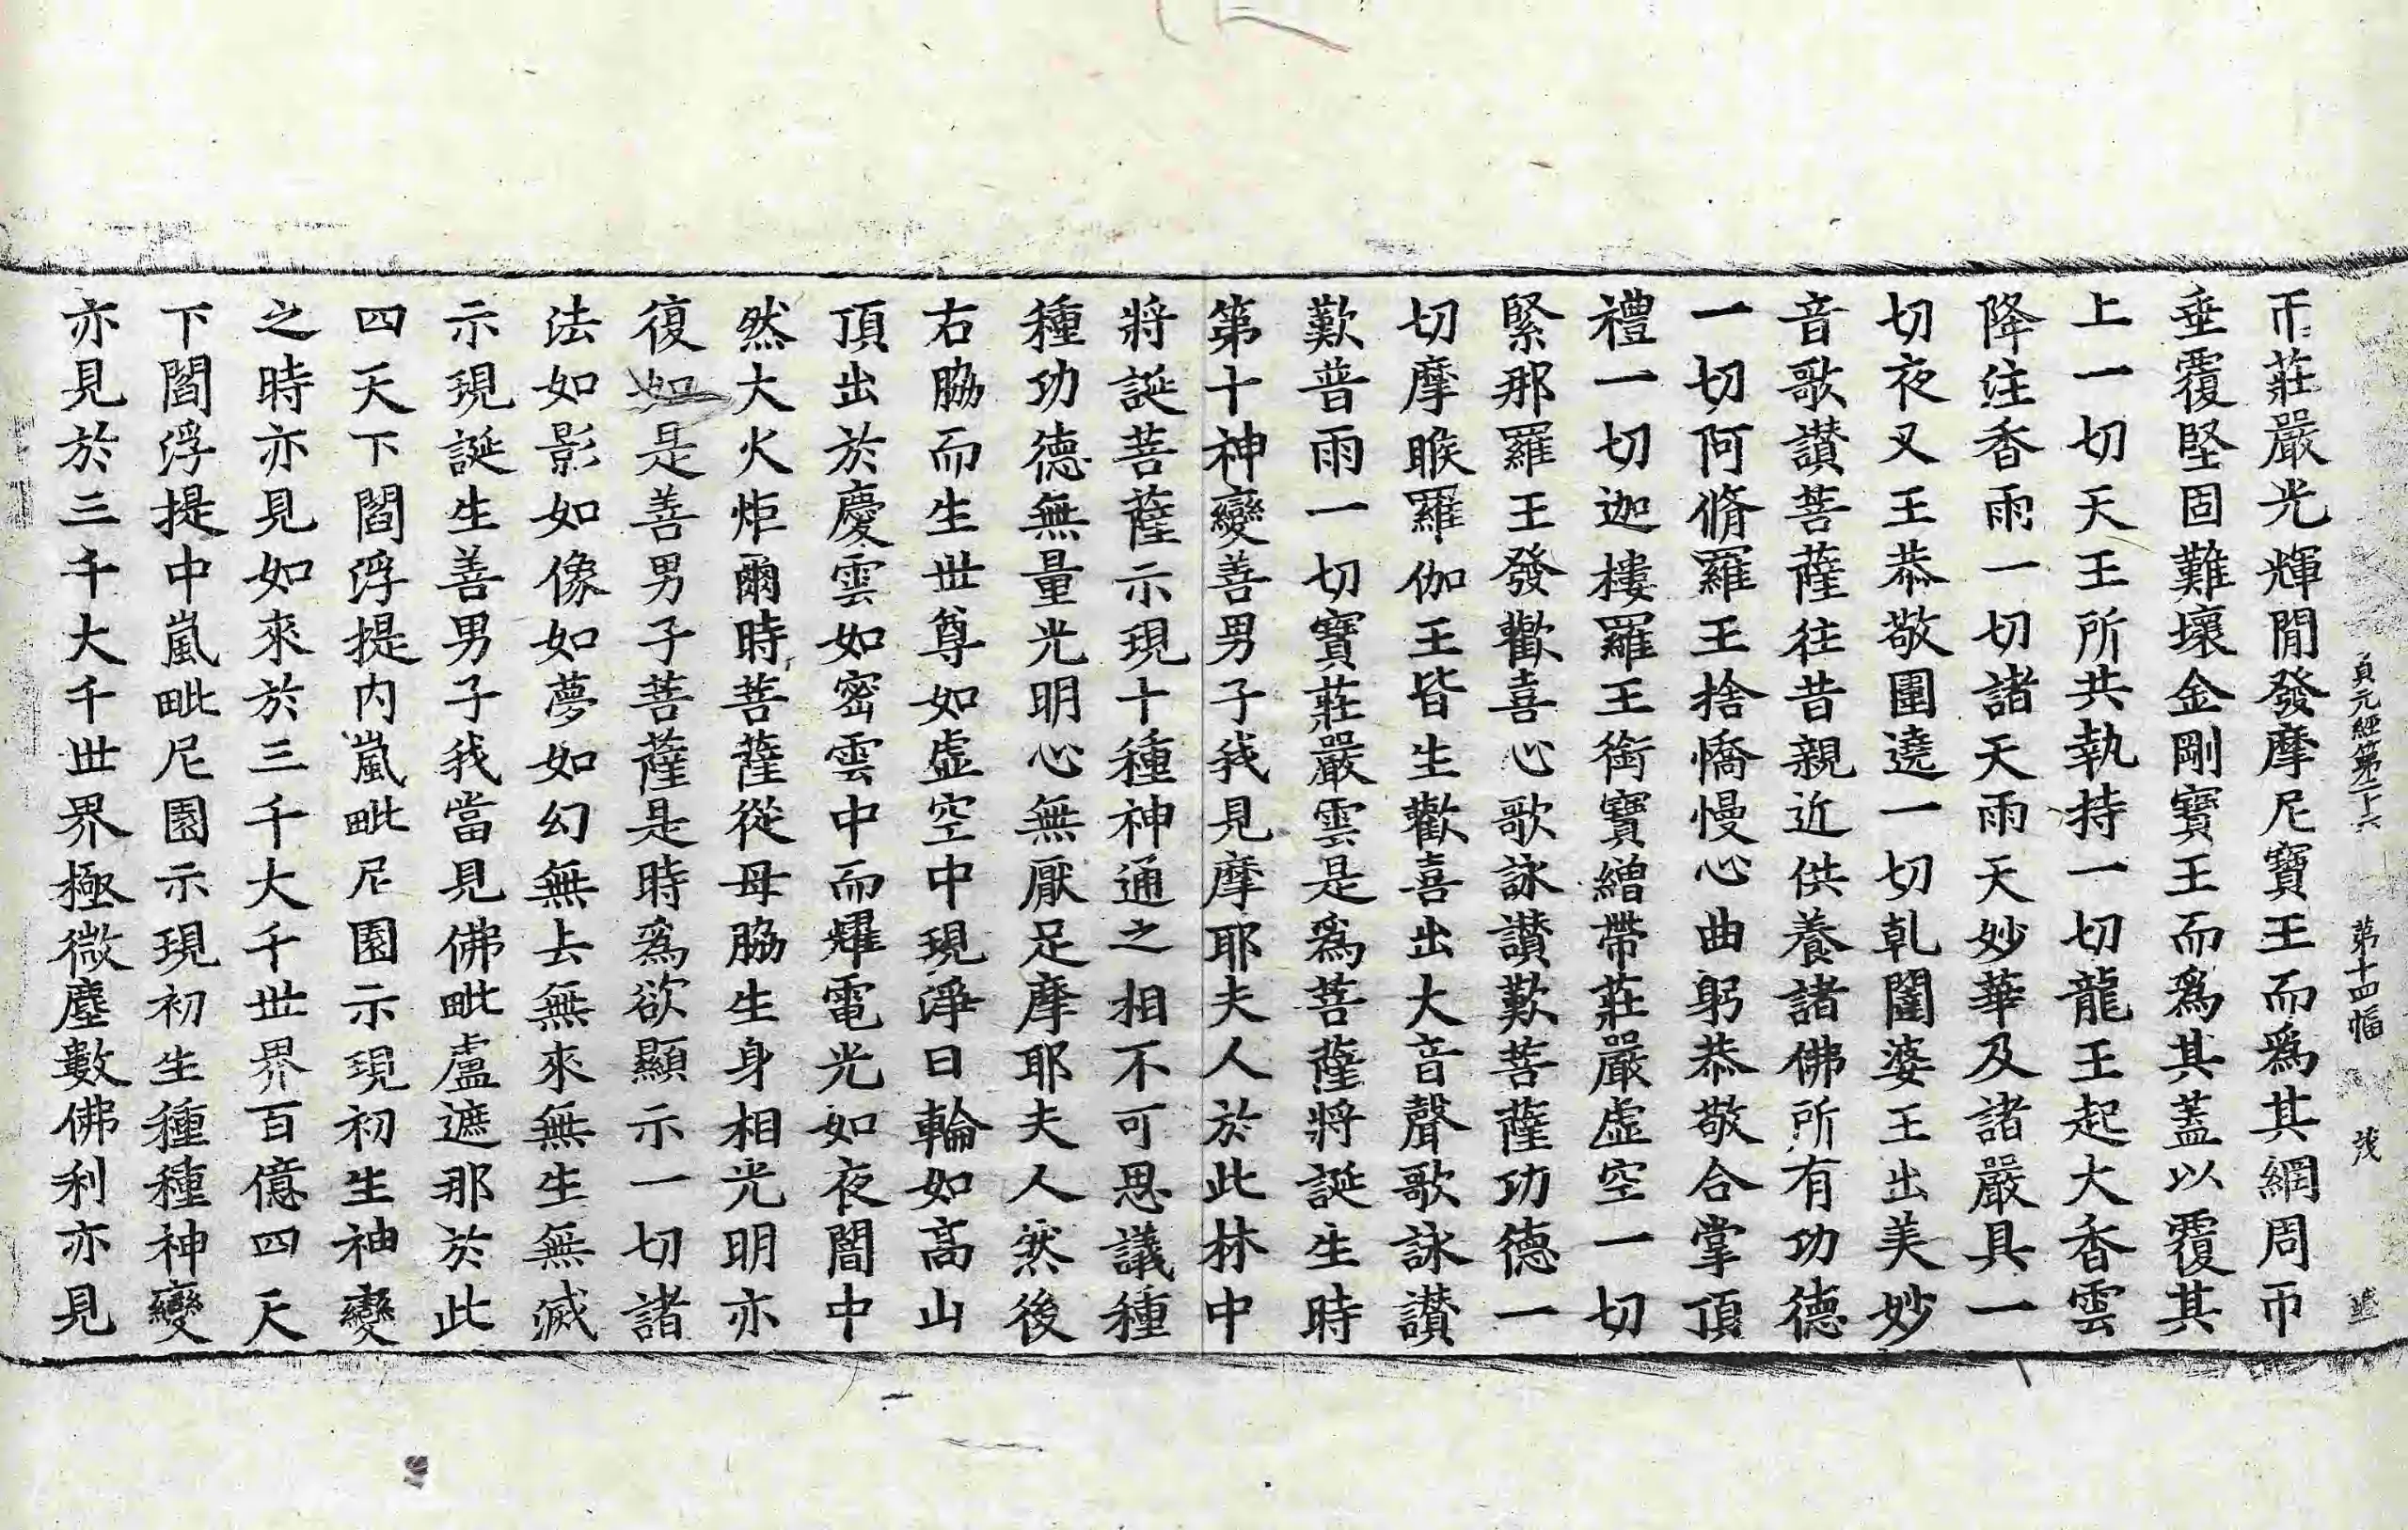 貞元經第二十六 第十四幅 茂
帀莊嚴光輝閒發摩尼寶王而爲其網周帀
垂覆堅固難壞金剛寶王而爲其蓋以覆其
上一切天王所共執持一切龍王起大香雲
降注香雨一切諸天雨天妙華及諸嚴具一
切夜叉王恭敬圍遶一切乹闥婆王出美妙
音歌讃菩薩往昔親近供養諸佛所有功德
一切阿脩羅王捨憍慢心曲躬恭敬合掌頂
禮一切迦樓羅王銜寶繒帶莊嚴虛空一切
緊那羅王發歡喜心歌詠讃歎菩薩功德一
切摩睺羅伽王皆生歡喜出大音聲歌詠讃
歎普雨一切寶莊嚴雲是爲菩薩將誕生時
第十神變善男子我見摩耶夫人於此林中
將誕菩薩示現十種神通之相不可思議種
種功德無量光明心無厭足摩耶夫人然後
右脇而生世尊如虛空中現淨日輪如高山
頂出於慶雲如密雲中而耀電光如夜闇中
然大火炬爾時菩薩從母脇生身相光明亦
復如是善男子菩薩是時爲欲顯示一切諸
法如影如像如夢如幻無去無來無生無滅
示現誕生善男子我當見佛毗盧遮那於此
四天下閻浮提内嵐毗尼園示現初生神變
之時亦見如來於三千大千世界百億四天
下閻浮提中嵐毗尼園示現初生種種神變
亦見於三千大千世界極微塵數佛刹亦見